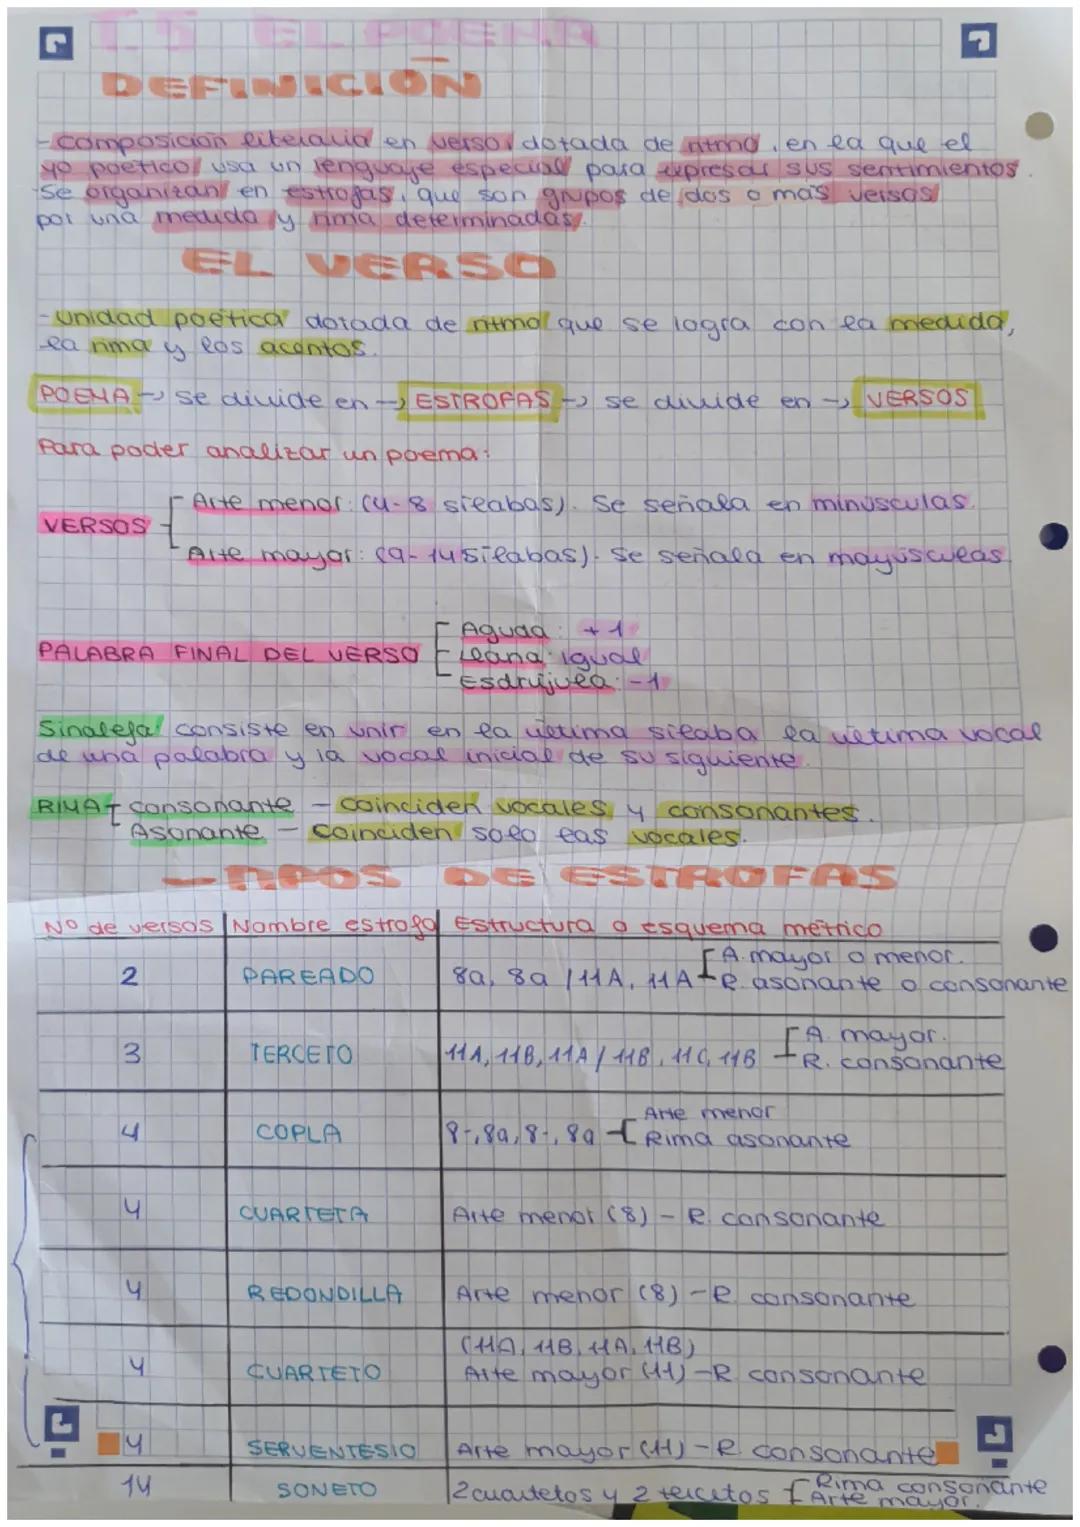 T.5 EL POEMA
DEFINICIÓN
-composición literaria en verso, dotada de ritmo, en la que el
yo poético, usa un lenguaje especial para expresar sus sentimientos.
-Se organizan en estrofas, que son grupos de dos o más versos
por una medida y rima determinadas.
EL VERSO
-unidad poética dotada de ritmo que se logra con la medida,
la rima y los acentos.
POEMA → se divide en → ESTROFAS → se divide en → VERSOS
Para poder analizar un poema:
VERSOS
Arte menor: (4-8 sílabas). Se señala en minúsculas.
Arte mayor: (9-14 sílabas). Se señala en mayúsculas.
PALABRA FINAL DEL VERSO
Aguda: +1
Llana: igual
Esdrújula: -1
Sinalefa: consiste en unir en la última sílaba la última vocal
de una palabra y la vocal inicial de su siguiente.
RIMA consonante - coinciden vocales y consonantes.
Asonante - coinciden solo las vocales.
-TIPOS DE ESTROFAS
Nº de versos Nombre estrofa Estructura o esquema métrico
2 PAREADO 8a, 8a / 11A, 11A A. mayor o menor.
R. asonante o consonante
3 TERCETO 11A, 11B, 11A / 11B, 11C, 11B A. mayor.
R. consonante
4 COPLA 8-, 8a, 8-, 8a Arte menor
Rima asonante
4 CUARTETA Arte menor (8) - R. consonante
4 REDONDILLA Arte menor (8) - R. consonante
(11A, 11B, 11A, 11B)
4 CUARTETO Arte mayor (11) - R. consonante
4 SERVENTESIO Arte mayor (11) - R. consonante
14 SONETO 2 cuartetos y 2 tercetos Rima consonante
Arte mayor.